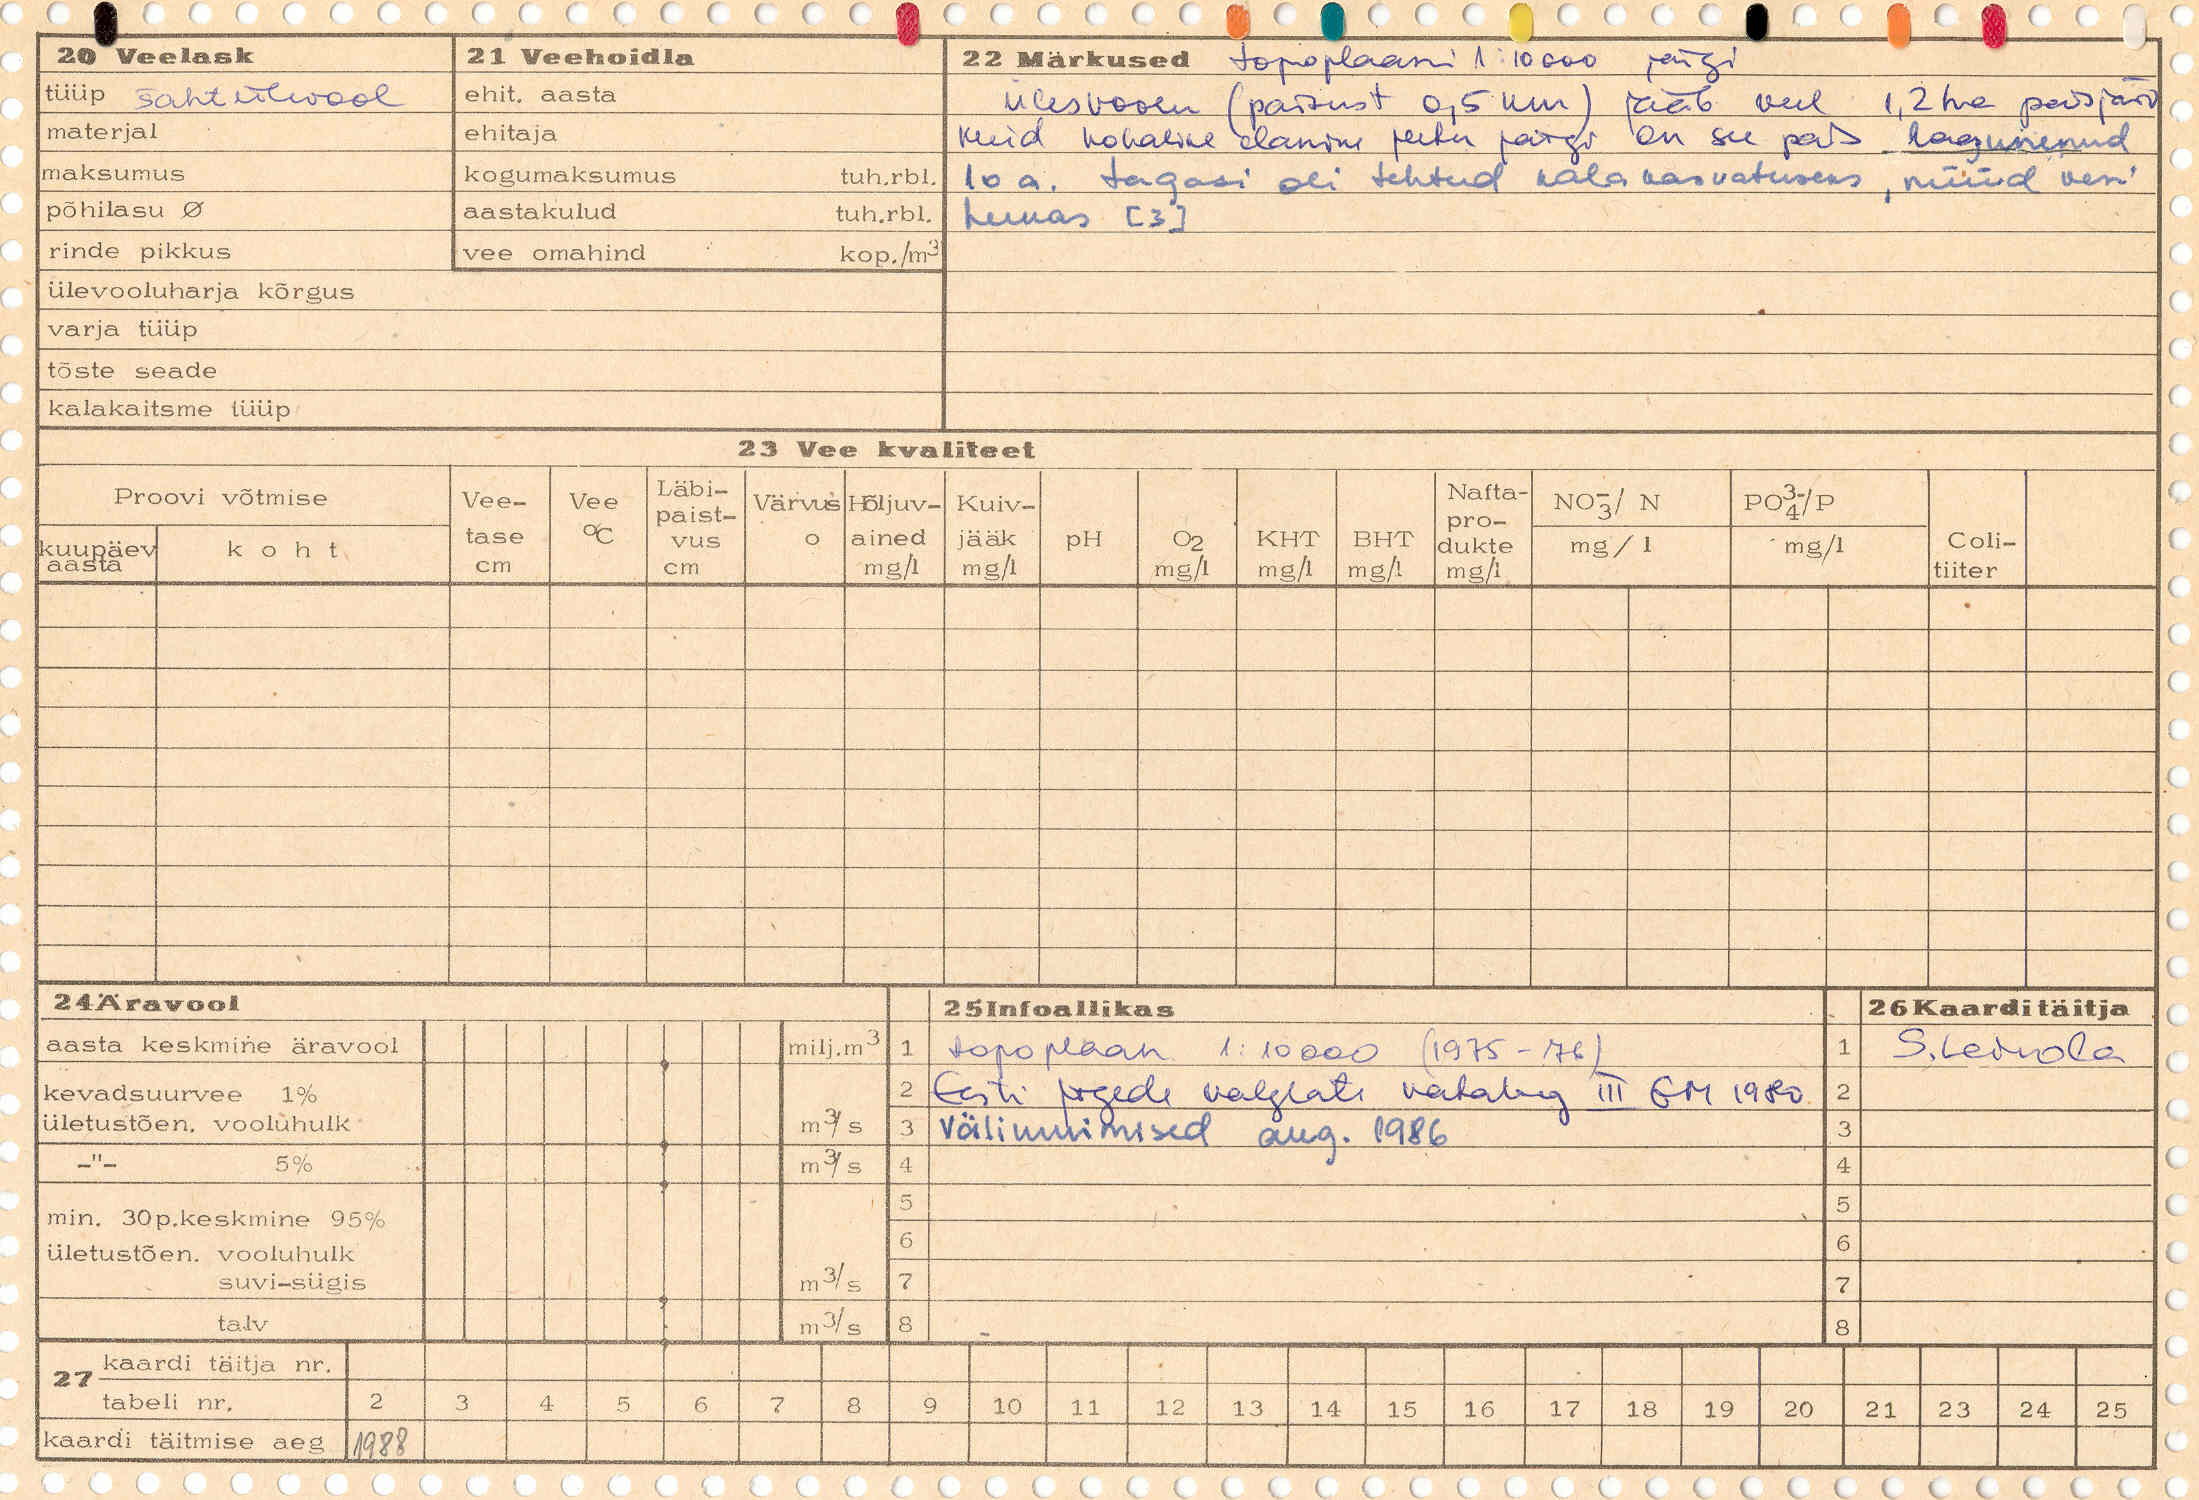 20 Veelask
tüüp šahtülevool
materjal
maksumus
põhilasu Ø
rinde pikkus
ülevooluharja kõrgus
varja tüüp
tõste seade
kalakaitsme tüüp
21 Veehoidla
ehit. aasta
ehitaja
kogumaksumus tuh.rbl.
aastakulud tuh.rbl.
vee omahind kop./m³
22 Märkused topoplaani 1:10000 järgi
ülesvoolu (paisust 0,5 km) jääb veel 1,2 ha paisjärv
kuid kohaliku elaniku jutu järgi on see pais lagunenud
10 a. tagasi oli tehtud kalakasvatuseks, nüüd vesi
[3]
23 Vee kvaliteet
Proovi võtmise
kuupäev aasta
koht
Vee-tase cm
Vee °C
Läbi-paist-vus cm
Värvus o
Hõljuv-ained mg/l
Kuiv-jääk mg/l
pH
O2 mg/l
KHT mg/l
BHT mg/l
Nafta-pro-dukte mg/l
NO3⁻/ N mg/l
PO4³⁻/P mg/l
Coli-tiiter
24 Äravool
aasta keskmine äravool milj.m³
kevadsuurvee 1%
ületustõen. vooluhulk m³/s
-"- 5% m³/s
min. 30p.keskmine 95%
ületustõen. vooluhulk
suvi-sügis m³/s
talv m³/s
25 Infoallikas
1 topoplaan 1:10000 (1975-76)
2 Eesti jõgede valglate kataloog III EM 1980
3 Väliuurimised aug. 1986
4
5
6
7
8
26 Kaarditäitja
1 S. Leinola
2
3
4
5
6
7
8
27 kaardi täitja nr.
tabeli nr. 2 3 4 5 6 7 8 9 10 11 12 13 14 15 16 17 18 19 20 21 23 24 25
kaardi täitmise aeg 1988